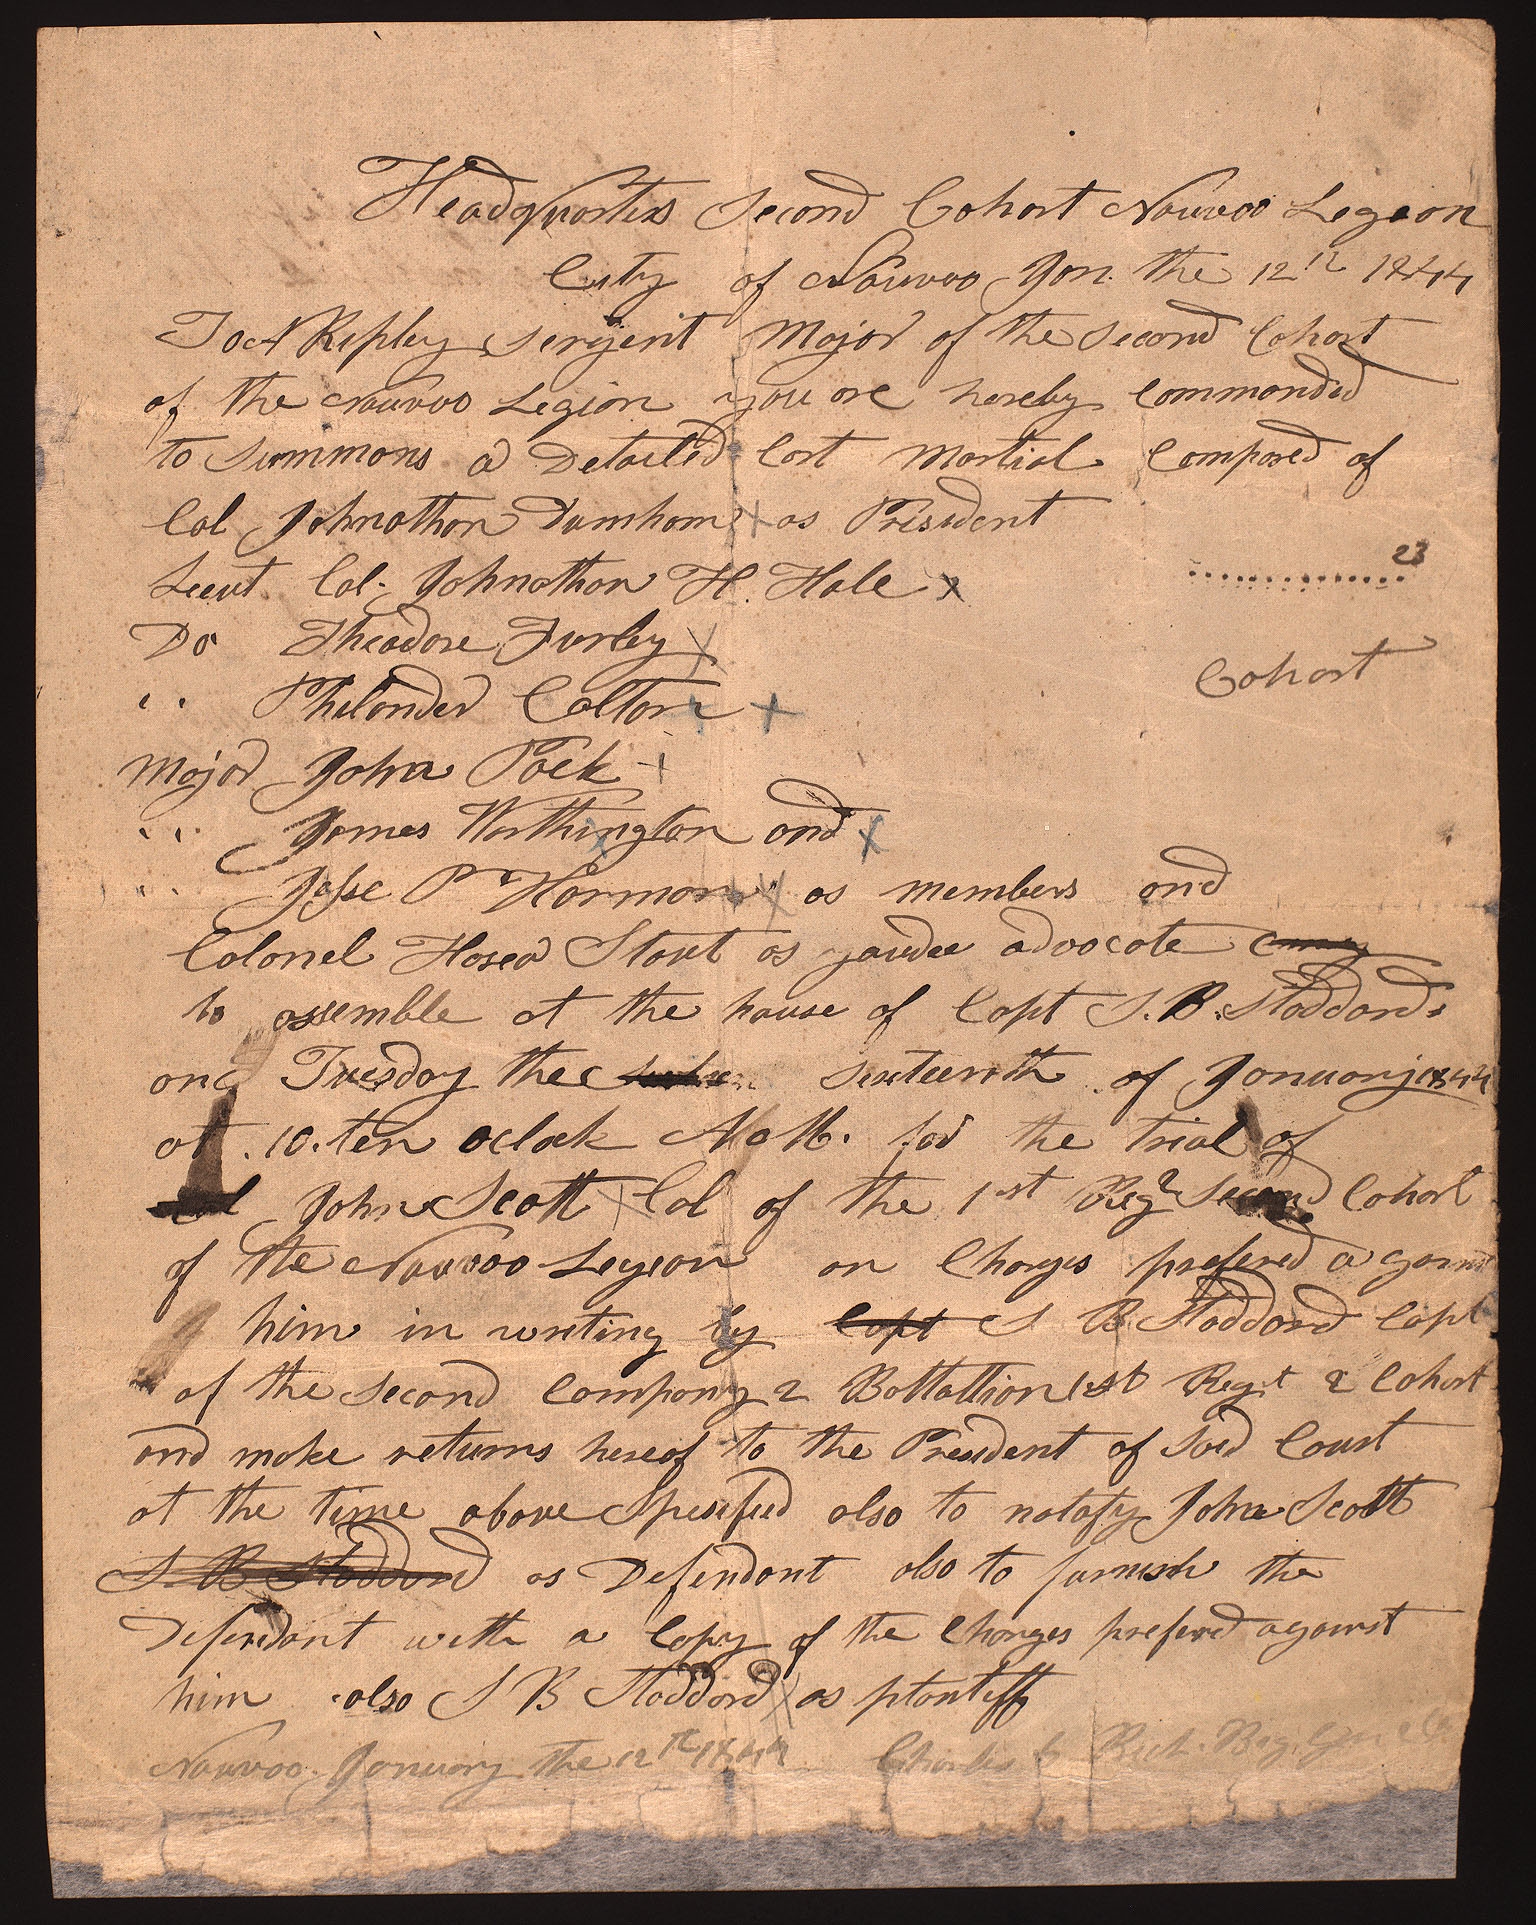 Headquarters Second Cohort Nauvoo Legeon
City of Nauvoo Jan. the 12th 1844
To A Ripley Serjent Major of the Second Cohort
of the Nauvoo Legion you are hereby Commanded
to Summons a Detailed Cort Martial Composed of
Col Johnathan Dunham X as President
23
Leeut Col. Johnathan H. Hale X
Do Theadore Turley X
Cohort
" Philander Colton X
Major John Pack X
" James Worthington and X
" Jesse P Harmon X as members and
Colonel Hosea Stout as judee advocate
to assemble at the house of Capt S. B. Stoddards
on Tuesday the sixteenth of January 1844
at 10. ten oclock A. M. for the trial of
Col John Scott X Col of the 1st Regt Second Cohort
of the Nauvoo Legeon on Charges prefered against
him in writing by Capt S B Stoddard Capt
of the Second Company 2 Battallion 1st Regt 2 Cohort
and make returns hereof to the President of Said Court
at the time above Spesified also to notafy John Scott
S B Stoddard as Defendant also to furnish the
Defendant with a Copy of the Charges prefered against
him also S B Stoddard X as plantiff
Nauvoo January the 12th 1844 Charles C Rich. Brig. Gen